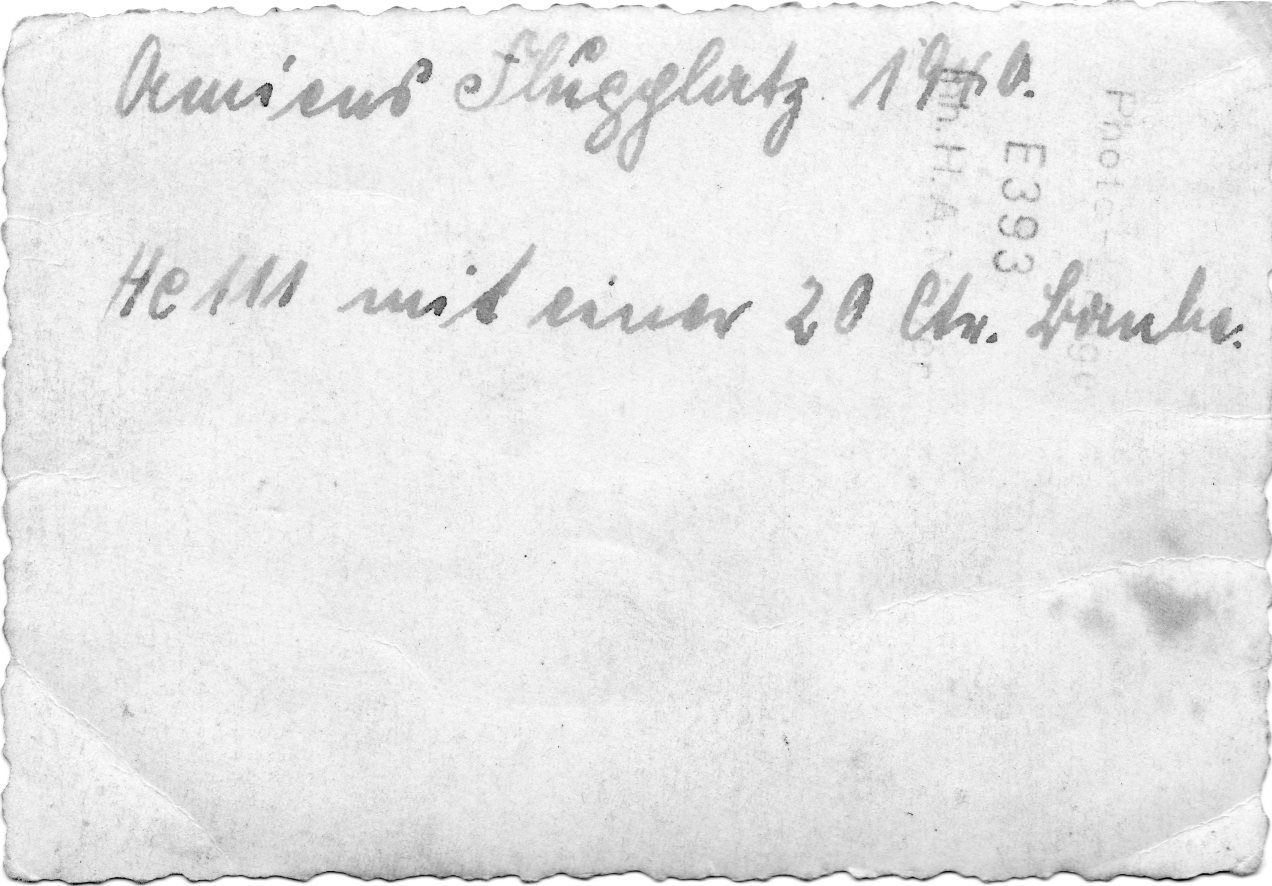 Amiens Flugplatz 1940.
He 111 mit einer 20 Ctr. Bombe.
E393
Inh. H. A.